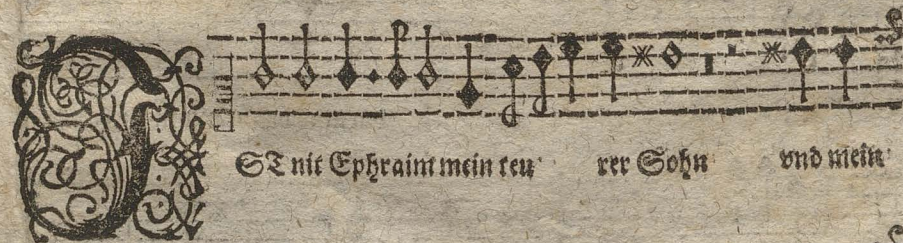 IST nit Ephraim mein teu rer Sohn vnd mein